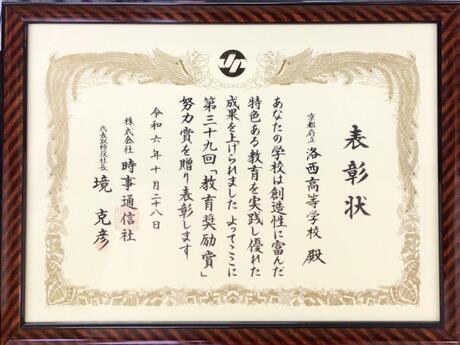 表彰状
京都府立 洛西高等学校 殿
あなたの学校は創造性に富んだ
特色ある教育を実践し優れた
成果を上げられました よってここに
第三十九回「教育奨励賞」
努力賞を贈り表彰します
令和六年十月二十八日
株式会社 時事通信社
代表取締役社長 境 克彦